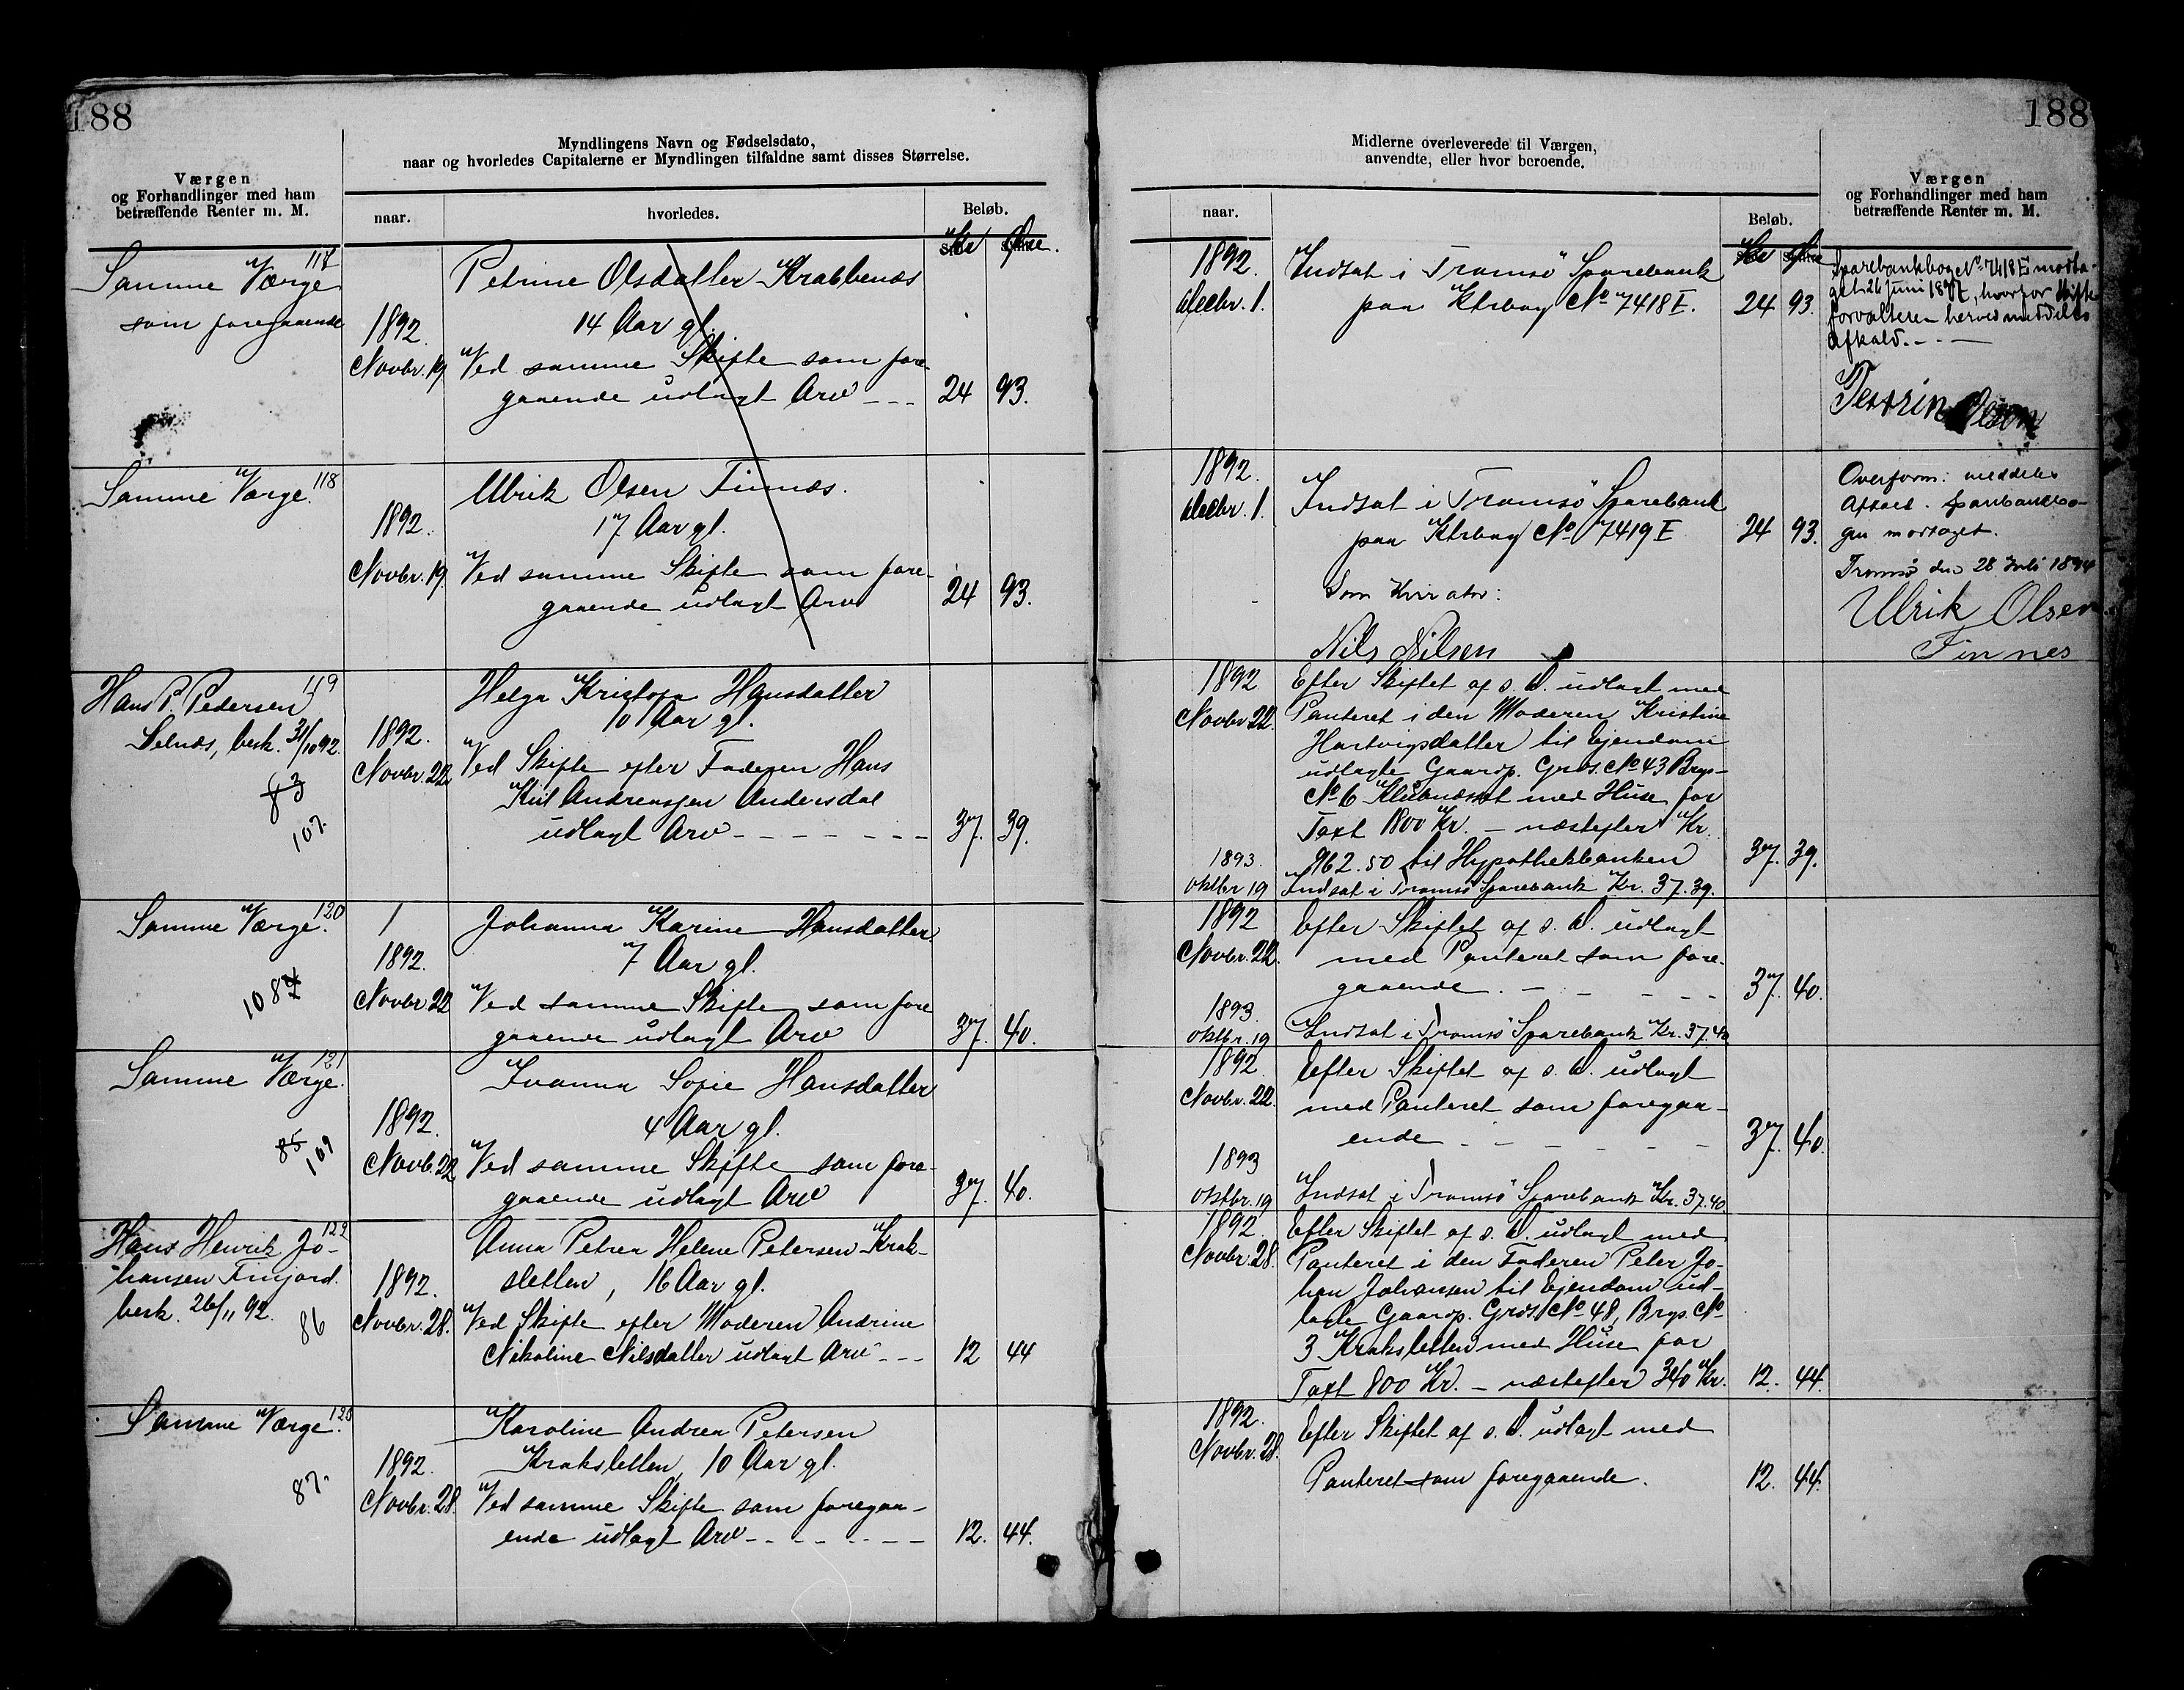 188
Værgen
og Forhandlinger med ham
betræffende Renter m. M.
Myndlingens Navn og Fødselsdato,
naar og hvorledes Capitalerne er Myndlingen tilfaldne samt disses Størrelse.
naar.
hvorledes.
Beløb.
Kr Øre.
117
Samme Værge
som foregaaende
1892
Novbr. 19
Petrine Olsdatter Krabbenæs
14 Aar gl.
Ved samme Skifte som fore-
gaaende udlagt Arv - - - 24 93.
Samme Værge. 118
1892.
Novbr. 19
Ulrik Olsen Finnæs.
17 Aar gl.
Ved samme Skifte som fore-
gaaende udlagt Arv 24 93.
119
Hans P. Pedersen
Selnæs, besk. 31/10 92.
83
107.
1892.
Novbr. 22
Helga Hansdatter
10 Aar gl.
Ved Skifte efter Faderen Hans
Andreassen Andersdal
udlagt Arv - - - - - - - 37. 39.
Samme Værge. 120
108
1892.
Novbr 22
Johanna Karine Hansdatter.
7 Aar gl.
Ved samme Skifte som fore
gaaende udlagt Arv 37. 40.
121
Samme Værge.
85
109
1892.
Novb. 22
Ivanna Sofie Hansdatter
4 Aar gl.
Ved samme Skifte som fore-
gaaende udlagt Arv 37. 40.
122
Hans Henrik Jo-
hansen Finjord.
besk. 26/11 92.
86
1892.
Novbr. 28.
Anna Petrea Helene Petersen Krak-
sletten, 16 Aar gl.
Ved Skifte efter Moderen Andrine
Nikoline Nilsdatter udlagt Arv - - - 12 44
Samme Værge. 123
87.
1892.
Novbr. 28.
Karoline Andrea Petersen
Kraksletten, 10 Aar gl.
Ved samme Skifte som foregaa-
ende udlagt Arv - - - - - - - 12. 44.
188
Midlerne overleverede til Værgen,
anvendte, eller hvor beroende.
naar.
Beløb.
Værgen
og Forhandlinger med ham
betræffende Renter m. M.
1892.
Decbr. 1.
Indsat i Tromsø Sparebank
paa Ktrbog No 7418 E. 24 93.
Sparebankbog No 7418 E modta-
get 26 Juni 1897, hvorfor Skifte
forvalteren herved meddeles
Afkald. - - -
Olsen
1892.
Decbr. 1.
Indsat i Tromsø Sparebank
paa Ktrbog No 7419 E 24 93.
Som Kurator:
Nils Nilsen
Overform: meddeles
Afkald. Sparebankbo-
gen modtaget.
Tromsø den 28 Juli 1894
Ulrik Olsen
Finnes
1892
Novbr 22.
Efter Skiftet af s. D. udlagt med
Panteret i den Moderen Kristine
Hartvigsdatter til Ejendom
udlagte Gaardp. Grds. No 43 Brgs-
No 6 med Huse for
Taxt 1800 Kr. - næstefter Kr.
962.50 til Hypothekbanken 37. 39.
1893.
oktbr 19
Indsat i Tromsø Sparebank Kr. 37.39.
1892
Novbr. 22.
Efter Skiftet af s. D. udlagt
med Panteret som fore-
gaaende. - - - - - 37. 40.
1893.
oktbr. 19
Indsat i Tromsø Sparebank Kr. 37.40
1892
Novbr. 22.
Efter Skiftet af s. D. udlagt
med Panteret som foregaa-
ende - - - - - - 37. 40.
1893
oktbr. 19
Indsat i Tromsø Sparebank Kr. 37.40
1892.
Novbr 28.
Efter Skiftet af s. D. udlagt med
Panteret i den Faderen Peter Jo-
han Johansen til Ejendom ud-
lagte Gaardp. Grds. No 48, Brgs. No
3 Kraksletten med Huse for
Taxt 800 Kr. - næstefter 340 Kr. 12. 44.
1892.
Novbr. 28.
Efter Skiftet af s. D. udlagt med
Panteret som foregaaende. 12. 44.